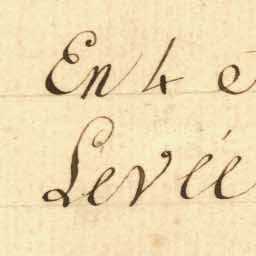 En 4 e
Levée